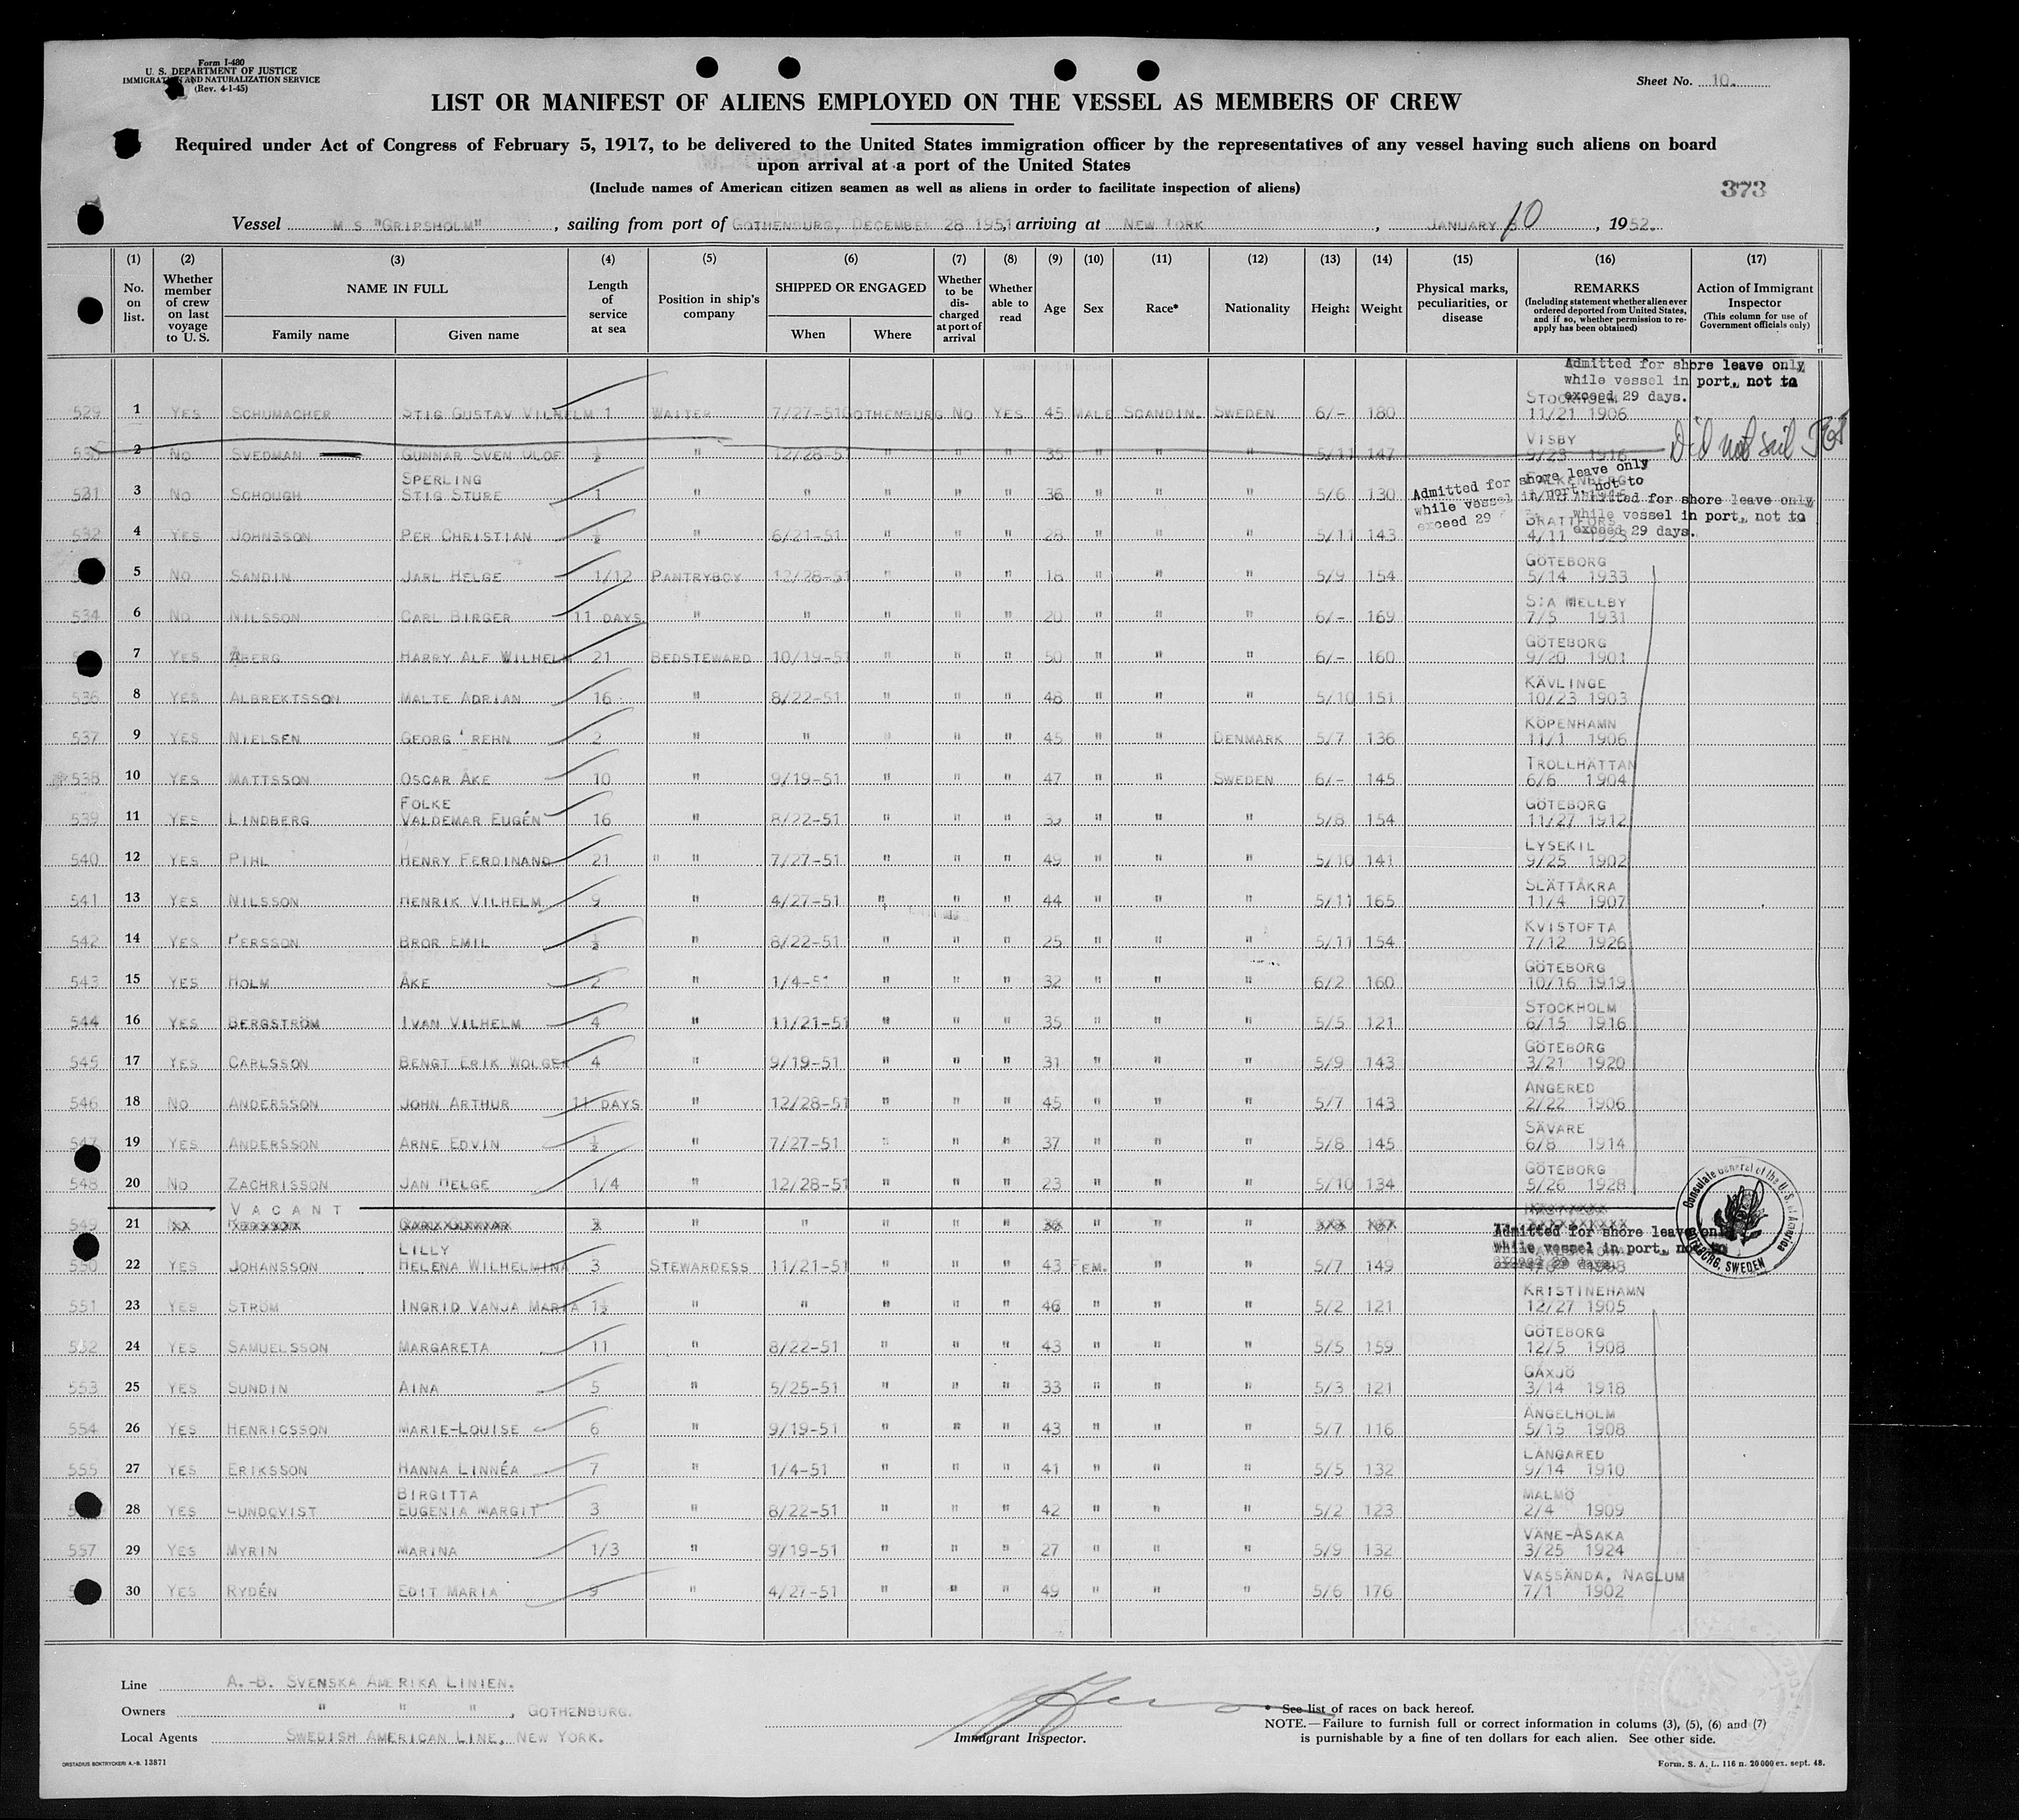 Form I-480
U. S. DEPARTMENT OF JUSTICE
IMMIGRATION AND NATURALIZATION SERVICE
(Rev. 4-1-45)
Sheet No. 10.
LIST OR MANIFEST OF ALIENS EMPLOYED ON THE VESSEL AS MEMBERS OF CREW
Required under Act of Congress of February 5, 1917, to be delivered to the United States immigration officer by the representatives of any vessel having such aliens on board
upon arrival at a port of the United States
(Include names of American citizen seamen as well as aliens in order to facilitate inspection of aliens)
373
Vessel M S "GRIPSHOLM", sailing from port of GOTHENBURG, DECEMBER 28 1951, arriving at NEW YORK, JANUARY 10, 1952.
(1) (2) (3) (4) (5) (6) (7) (8) (9) (10) (11) (12) (13) (14) (15) (16) (17)
No. on list. Whether member of crew on last voyage to U. S. NAME IN FULL Family name Given name Length of service at sea Position in ship's company SHIPPED OR ENGAGED When Where Whether to be discharged at port of arrival Whether able to read Age Sex Race* Nationality Height Weight Physical marks, peculiarities, or disease REMARKS (Including statement whether alien ever ordered deported from United States, and if so, whether permission to reapply has been obtained) Action of Immigrant Inspector (This column for use of Government officials only)
Admitted for shore leave only
while vessel in port, not to
exceed 29 days.
STOCKHOLM
529 1 YES SCHUMACHER STIG GUSTAV VILHELM 1 WAITER 7/27-51 GOTHENBURG NO YES 45 MALE SCANDIN. SWEDEN 6/- 180 11/21 1906
VISBY
530 2 NO SVEDMAN GUNNAR SVEN OLOF ½ " 12/28-51 " " " 35 " " " 5/11 147 9/23 1916 Did not sail
SPERLING
531 3 NO SCHOUGH STIG STURE 1 " " " " " 36 " " " 5/6 130
Admitted for shore leave only
while vessel in port, not to
exceed 29
Admitted for shore leave only
while vessel in port, not to
exceed 29 days.
BRATTFORS
532 4 YES JOHNSSON PER CHRISTIAN ½ " 6/21-51 " " " 28 " " " 5/11 143 4/11 1923
GÖTEBORG
5 NO SANDIN JARL HELGE 1/12 PANTRYBOY 12/28-51 " " " 18 " " " 5/9 154 5/14 1933
S:A MELLBY
534 6 NO NILSSON CARL BIRGER 11 DAYS " " " " " 20 " " " 6/- 169 7/5 1931
GÖTEBORG
7 YES ÅBERG HARRY ALF WILHELM 21 BEDSTEWARD 10/19-51 " " " 50 " " " 6/- 160 9/20 1901
KÄVLINGE
536 8 YES ALBREKTSSON MALTE ADRIAN 16 " 8/22-51 " " " 48 " " " 5/10 151 10/23 1903
KÖPENHAMN
537 9 YES NIELSEN GEORG REHN 2 " " " " " 45 " " DENMARK 5/7 136 11/1 1906
TROLLHÄTTAN
538 10 YES MATTSSON OSCAR ÅKE 10 " 9/19-51 " " " 47 " " SWEDEN 6/- 145 6/6 1904
FOLKE GÖTEBORG
539 11 YES LINDBERG VALDEMAR EUGÉN 16 " 8/22-51 " " " " " " 5/8 154 11/27 1912
LYSEKIL
540 12 YES PIHL HENRY FERDINAND 21 " " 7/27-51 " " " 49 " " " 5/10 141 9/25 1902
SLÄTTÅKRA
541 13 YES NILSSON HENRIK VILHELM 9 " 4/27-51 " " " 44 " " " 5/11 165 11/4 1907
KVISTOFTA
542 14 YES PERSSON BROR EMIL ½ " 8/22-51 " " " 25 " " " 5/11 154 7/12 1926
GÖTEBORG
543 15 YES HOLM ÅKE 2 " 1/4-51 " " " 32 " " " 6/2 160 10/16 1919
STOCKHOLM
544 16 YES BERGSTRÖM IVAN VILHELM 4 " 11/21-51 " " " 35 " " " 5/5 121 6/15 1916
GÖTEBORG
545 17 YES CARLSSON BENGT ERIK WOLGER 4 " 9/19-51 " " " 31 " " " 5/9 143 3/21 1920
ANGERED
546 18 NO ANDERSSON JOHN ARTHUR 11 DAYS " 12/28-51 " " " 45 " " " 5/7 143 2/22 1906
SÄVARE
547 19 YES ANDERSSON ARNE EDVIN ½ " 7/27-51 " " " 37 " " " 5/8 145 6/8 1914
GÖTEBORG
548 20 NO ZACHRISSON JAN HELGE 1/4 " 12/28-51 " " " 23 " " " 5/10 134 5/26 1928
VACANT
549 21 " " " " " " " "
Consulate General of the U. S. of America
GÖTEBORG, SWEDEN
Admitted for shore leave only
while vessel in port, not to
exceed 29 days.
LILLY
550 22 YES JOHANSSON HELENA WILHELMINA 3 STEWARDESS 11/21-51 " " " 43 FEM. " " 5/7 149
KRISTINEHAMN
551 23 YES STRÖM INGRID VANJA MARIA 1½ " " " " " 46 " " " 5/2 121 12/27 1905
GÖTEBORG
552 24 YES SAMUELSSON MARGARETA 11 " 8/22-51 " " " 43 " " " 5/5 159 12/5 1908
GÅXJÖ
553 25 YES SUNDIN AINA 5 " 5/25-51 " " " 33 " " " 5/3 121 3/14 1918
ÄNGELHOLM
554 26 YES HENRICSSON MARIE-LOUISE 6 " 9/19-51 " " " 43 " " " 5/7 116 5/15 1908
LÅNGARED
555 27 YES ERIKSSON HANNA LINNÉA 7 " 1/4-51 " " " 41 " " " 5/5 132 9/14 1910
BIRGITTA MALMÖ
28 YES LUNDQVIST EUGENIA MARGIT 3 " 8/22-51 " " " 42 " " " 5/2 123 2/4 1909
VÄNE-ÅSAKA
557 29 YES MYRIN MARINA 1/3 " 9/19-51 " " " 27 " " " 5/9 132 3/25 1924
VASSÄNDA, NAGLUM
30 YES RYDÉN EDIT MARIA 9 " 4/27-51 " " " 49 " " " 5/6 176 7/1 1902
Line A.-B. SVENSKA AMERIKA LINIEN.
Owners " " ", GOTHENBURG.
Local Agents SWEDISH AMERICAN LINE, NEW YORK.
Immigrant Inspector.
* See list of races on back hereof.
NOTE.—Failure to furnish full or correct information in colums (3), (5), (6) and (7)
is punishable by a fine of ten dollars for each alien. See other side.
ORSTADIUS BOKTRYCKERI A.-B. 13871
Form. S. A. L. 116 n. 20000 ex. sept. 48.